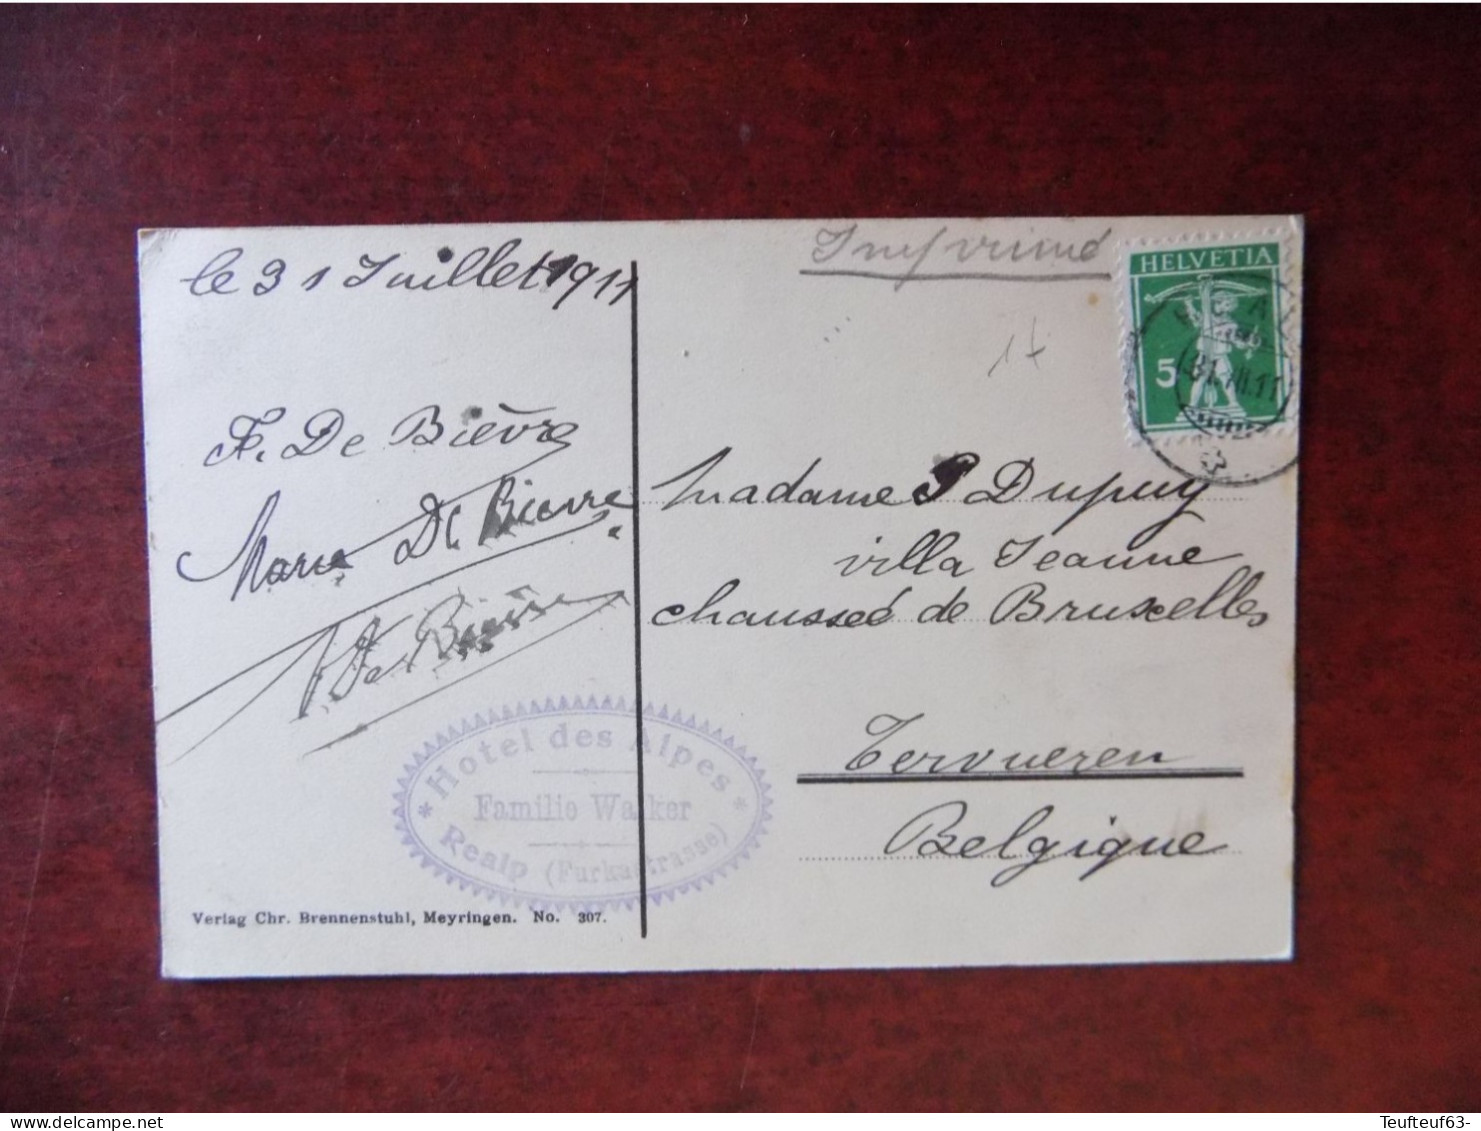 le 31 Juillet 1911
F. De Bièvre
Marie De Bievre
De Bièvre
Imprimé
17
HELVETIA
5
REAL
31.VII.11
Madame P Dupuy
villa Jeanne
chausseé de Bruxelles
Tervueren
Belgique
Hotel des Alpes
Familie Walker
Realp (Furkastrasse)
Verlag Chr. Brennenstuhl, Meyringen. No. 307.
Teufteuf63-
delcampe.net